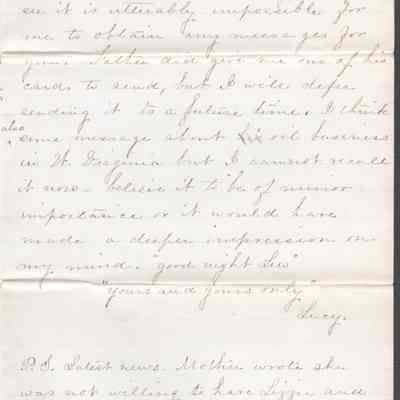 see it is utterably impossible for
me to obtain any messages for
you. Father did give me one of his
cards to send, but I will defer
sending it to a future time. I think
also
some message about his oil business
in W. Virginia but I cannot recall
it now - believe it to be of minor
importance or it would have
made a deeper impression on
my mind. "good night Lew"
"yours and yours only"
Lucy.
P.S. Latest news. Mother wrote she
was not willing to have Lizzie and